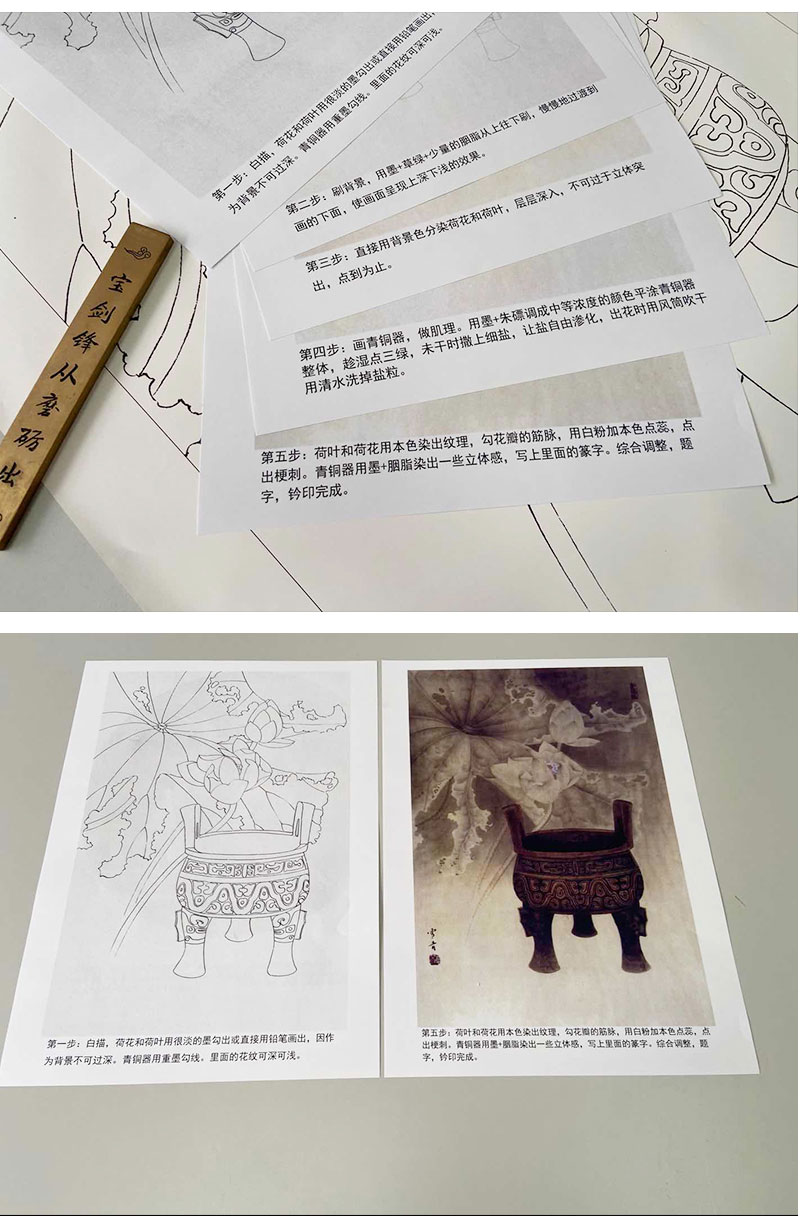 第一步：白描，荷花和荷叶用很淡的墨勾出或直接用铅笔画出，
为背景不可过深。青铜器用重墨勾线。里面的花纹可深可浅。
第二步：刷背景，用墨+草绿+少量的胭脂从上往下刷，慢慢地过渡到
画的下面，使画面呈现上深下浅的效果。
第三步：直接用背景色分染荷花和荷叶，层层深入，不可过于立体突
出，点到为止。
第四步：画青铜器，做肌理。用墨+朱磦调成中等浓度的颜色平涂青铜器
整体，趁湿点三绿，未干时撒上细盐，让盐自由渗化，出花时用风筒吹干
用清水洗掉盐粒。
第五步：荷叶和荷花用本色染出纹理，勾花瓣的筋脉，用白粉加本色点蕊，点
出梗刺。青铜器用墨+胭脂染出一些立体感，写上里面的篆字。综合调整，题
字，钤印完成。
宝剑锋从磨砺出
第一步：白描，荷花和荷叶用很淡的墨勾出或直接用铅笔画出，因作
为背景不可过深。青铜器用重墨勾线。里面的花纹可深可浅。
第五步：荷叶和荷花用本色染出纹理，勾花瓣的筋脉，用白粉加本色点蕊，点
出梗刺。青铜器用墨+胭脂染出一些立体感，写上里面的篆字。综合调整，题
字，钤印完成。